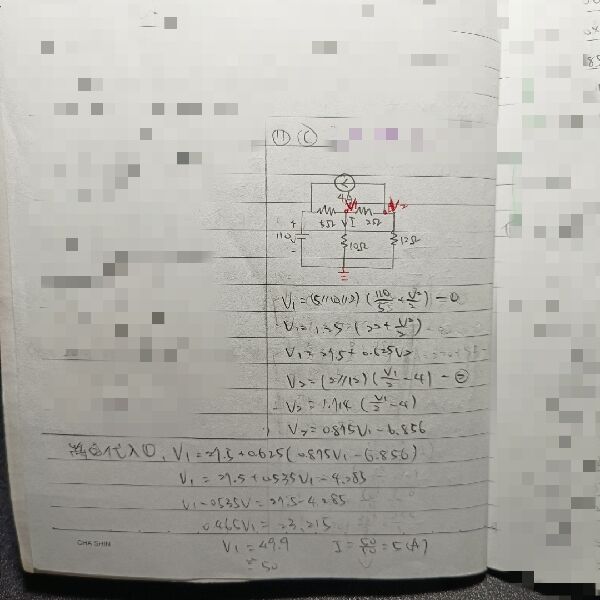 ⑪ (C)
4A
V1 V2
5Ω I 2Ω
+
110V
-
10Ω 12Ω
V1 = (5//10//2) (110/5 + V2/2) - ①
V1 = 1.25 (22 + V2/2)
V1 = 27.5 + 0.625V2
V2 = (2//12) (V1/2 - 4) - ②
V2 = 1.714 (V1/2 - 4)
V2 = 0.857V1 - 6.856
②代入①, V1 = 27.5 + 0.625(0.857V1 - 6.856)
V1 = 27.5 + 0.535V1 - 4.285
V1 - 0.535V1 = 27.5 - 4.285
0.465V1 = 23.215
V1 = 49.9 I = 50/10 = 5(A)
≒ 50
CHA SHIN